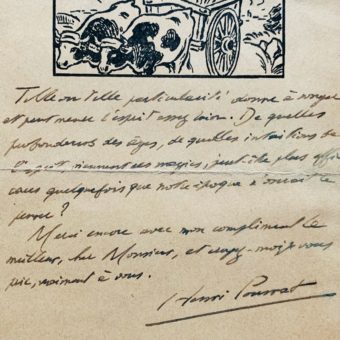 Telle ou telle particularité donne à songer
et peut mener l'esprit assez loin. De quelles
profondeurs des âges, de quelles intuitions de
l'esprit viennent ces magies, peut-être plus effi-
caces quelquefois que notre époque n'oserait le
penser ?
Merci encore avec mon compliment le
meilleur, cher Monsieur, et croyez-moi, je vous
prie, vraiment à vous.
Henri Pourrat